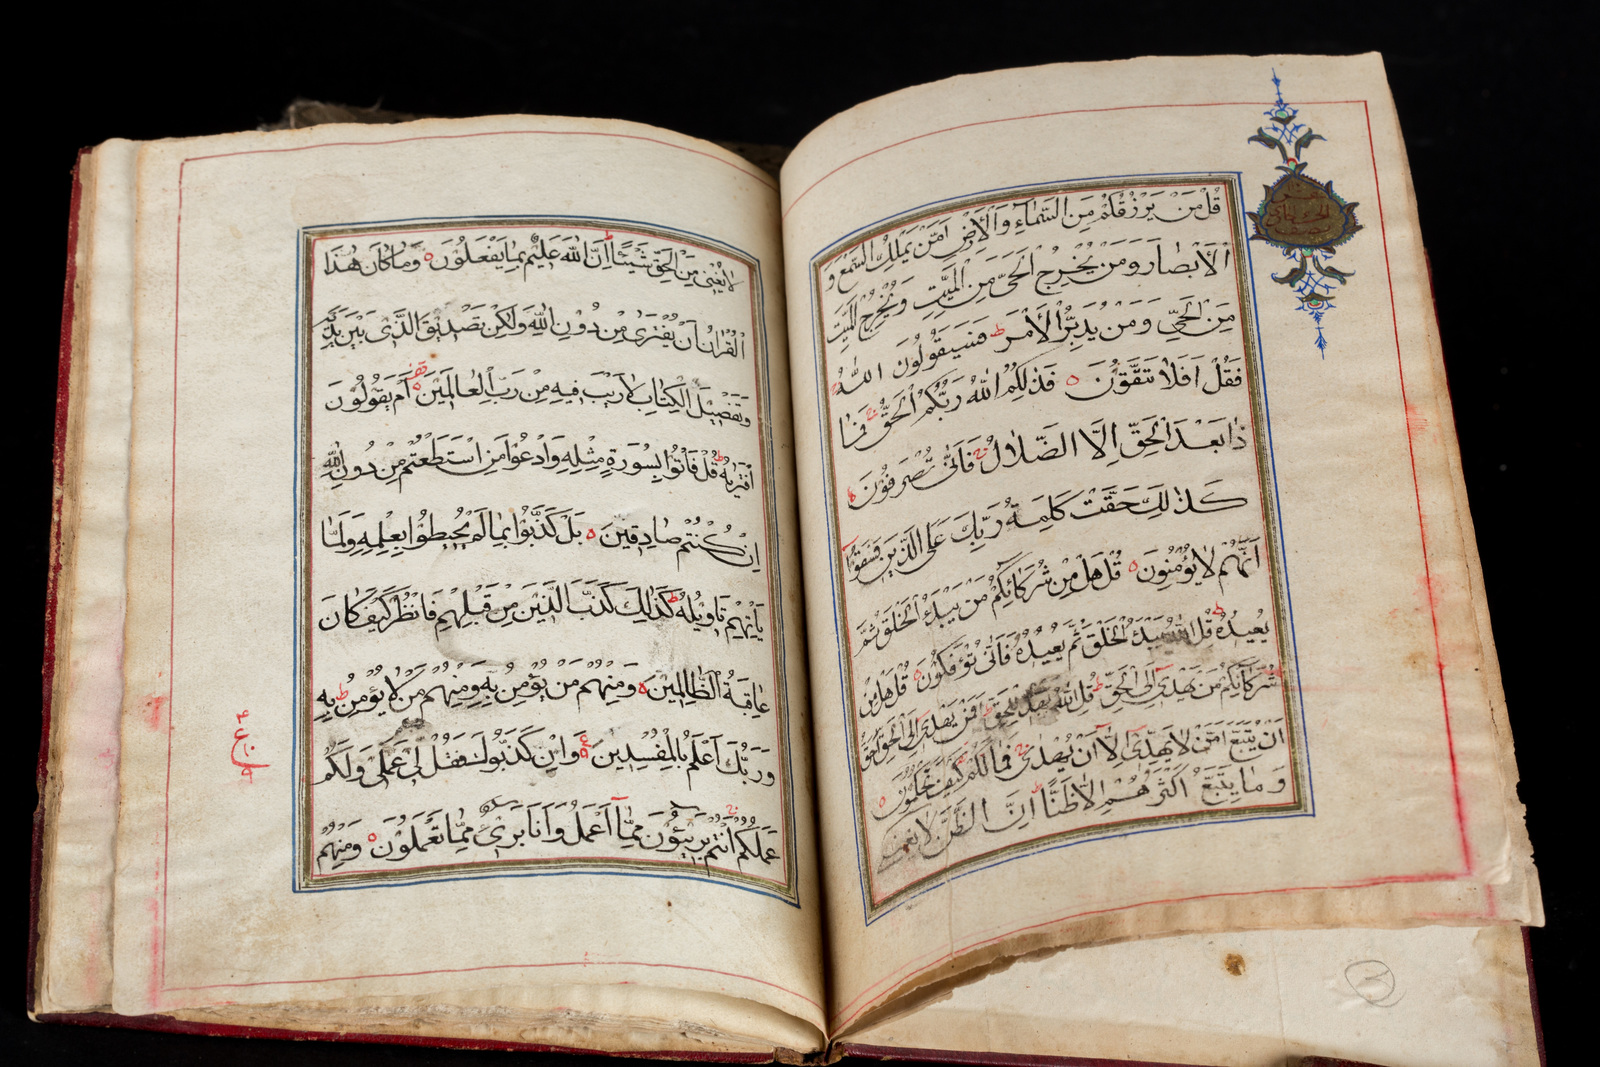 قُلْ مَنْ يَرْزُقُكُمْ مِنَ السَّمَاءِ وَالْأَرْضِ اَمَّنْ يَمْلِكُ السَّمْعَ وَ
الْاَبْصَارَ وَمَنْ يُخْرِجُ الْحَىَّ مِنَ الْمَيِّتِ وَيُخْرِجُ الْمَيِّتَ
مِنَ الْحَيِّ وَمَنْ يُدَبِّرُ الْاَمْرَ ط فَسَيَقُولُونَ اللهُ
فَقُلْ اَفَلَا تَتَّقُونَ ه فَذٰلِكُمُ اللهُ رَبُّكُمُ الْحَقُّ فَمَا
ذَا بَعْدَ الْحَقِّ اِلَّا الضَّلَالُ فَاَنّٰى تُصْرَفُونَ ه
كَذٰلِكَ حَقَّتْ كَلِمَةُ رَبِّكَ عَلَى الَّذِينَ فَسَقُوا
اَنَّهُمْ لَا يُؤْمِنُونَ ه قُلْ هَلْ مِنْ شُرَكَائِكُمْ مَنْ يَبْدَؤُ الْخَلْقَ ثُمَّ
يُعِيدُهُ ط قُلِ اللهُ يَبْدَؤُ الْخَلْقَ ثُمَّ يُعِيدُهُ فَاَنّٰى تُؤْفَكُونَ ه قُلْ هَلْ مِنْ
شُرَكَائِكُمْ مَنْ يَهْدِى اِلَى الْحَقِّ ط قُلِ اللهُ يَهْدِى لِلْحَقِّ ط اَفَمَنْ يَهْدِى اِلَى الْحَقِّ اَحَقُّ
اَنْ يُتَّبَعَ اَمَّنْ لَا يَهِدِّى اِلَّا اَنْ يُهْدٰى فَمَا لَكُمْ كَيْفَ تَحْكُمُونَ ه
وَمَا يَتَّبِعُ اَكْثَرُهُمْ اِلَّا ظَنًّا اِنَّ الظَّنَّ لَا يُغْنِى
لَا يُغْنِى مِنَ الْحَقِّ شَيْئًا ط اِنَّ اللهَ عَلِيمٌ بِمَا يَفْعَلُونَ ه وَمَا كَانَ هٰذَا
الْقُرْاٰنُ اَنْ يُفْتَرٰى مِنْ دُونِ اللهِ وَلٰكِنْ تَصْدِيقَ الَّذِى بَيْنَ يَدَيْهِ
وَتَفْصِيلَ الْكِتَابِ لَا رَيْبَ فِيهِ مِنْ رَبِّ الْعَالَمِينَ ه اَمْ يَقُولُونَ
افْتَرٰيهُ ط قُلْ فَأْتُوا بِسُورَةٍ مِثْلِهِ وَادْعُوا مَنِ اسْتَطَعْتُمْ مِنْ دُونِ اللهِ
اِنْ كُنْتُمْ صَادِقِينَ ه بَلْ كَذَّبُوا بِمَا لَمْ يُحِيطُوا بِعِلْمِهِ وَلَمَّا
يَأْتِهِمْ تَأْوِيلُهُ ط كَذٰلِكَ كَذَّبَ الَّذِينَ مِنْ قَبْلِهِمْ فَانْظُرْ كَيْفَ كَانَ
عَاقِبَةُ الظَّالِمِينَ ه وَمِنْهُمْ مَنْ يُؤْمِنُ بِهِ وَمِنْهُمْ مَنْ لَا يُؤْمِنُ بِهِ ط
وَرَبُّكَ اَعْلَمُ بِالْمُفْسِدِينَ وَاِنْ كَذَّبُوكَ فَقُلْ لِى عَمَلِى وَلَكُمْ
عَمَلُكُمْ ج اَنْتُمْ بَرِيئُونَ مِمَّا اَعْمَلُ وَاَنَا بَرِىءٌ مِمَّا تَعْمَلُونَ ه وَمِنْهُمْ